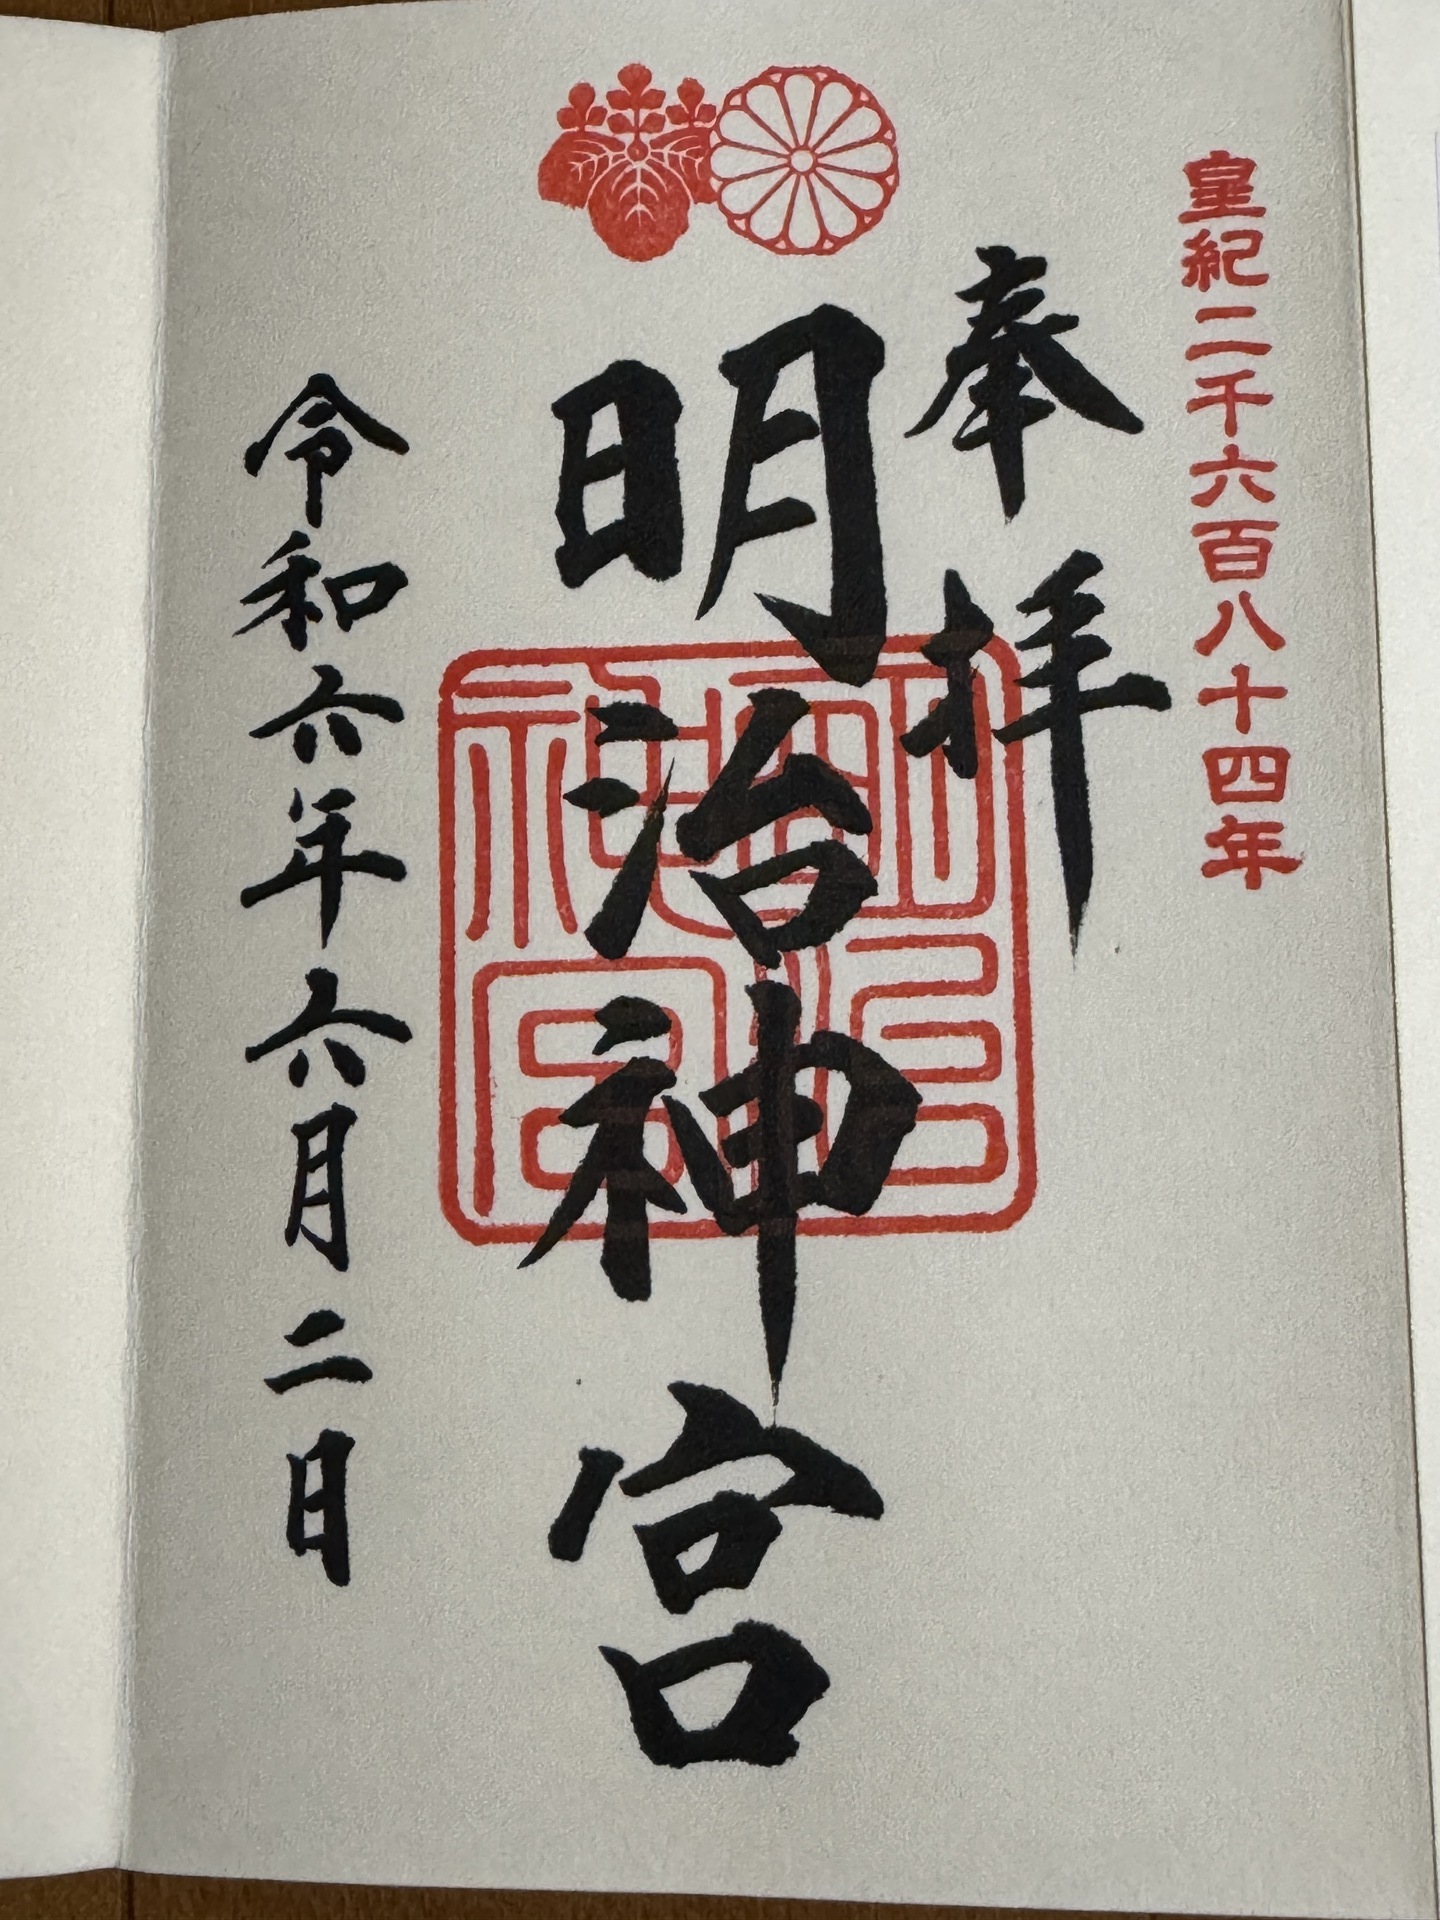 皇紀二千六百八十四年
奉拝
明治神宮
明治神宮
令和六年六月二日